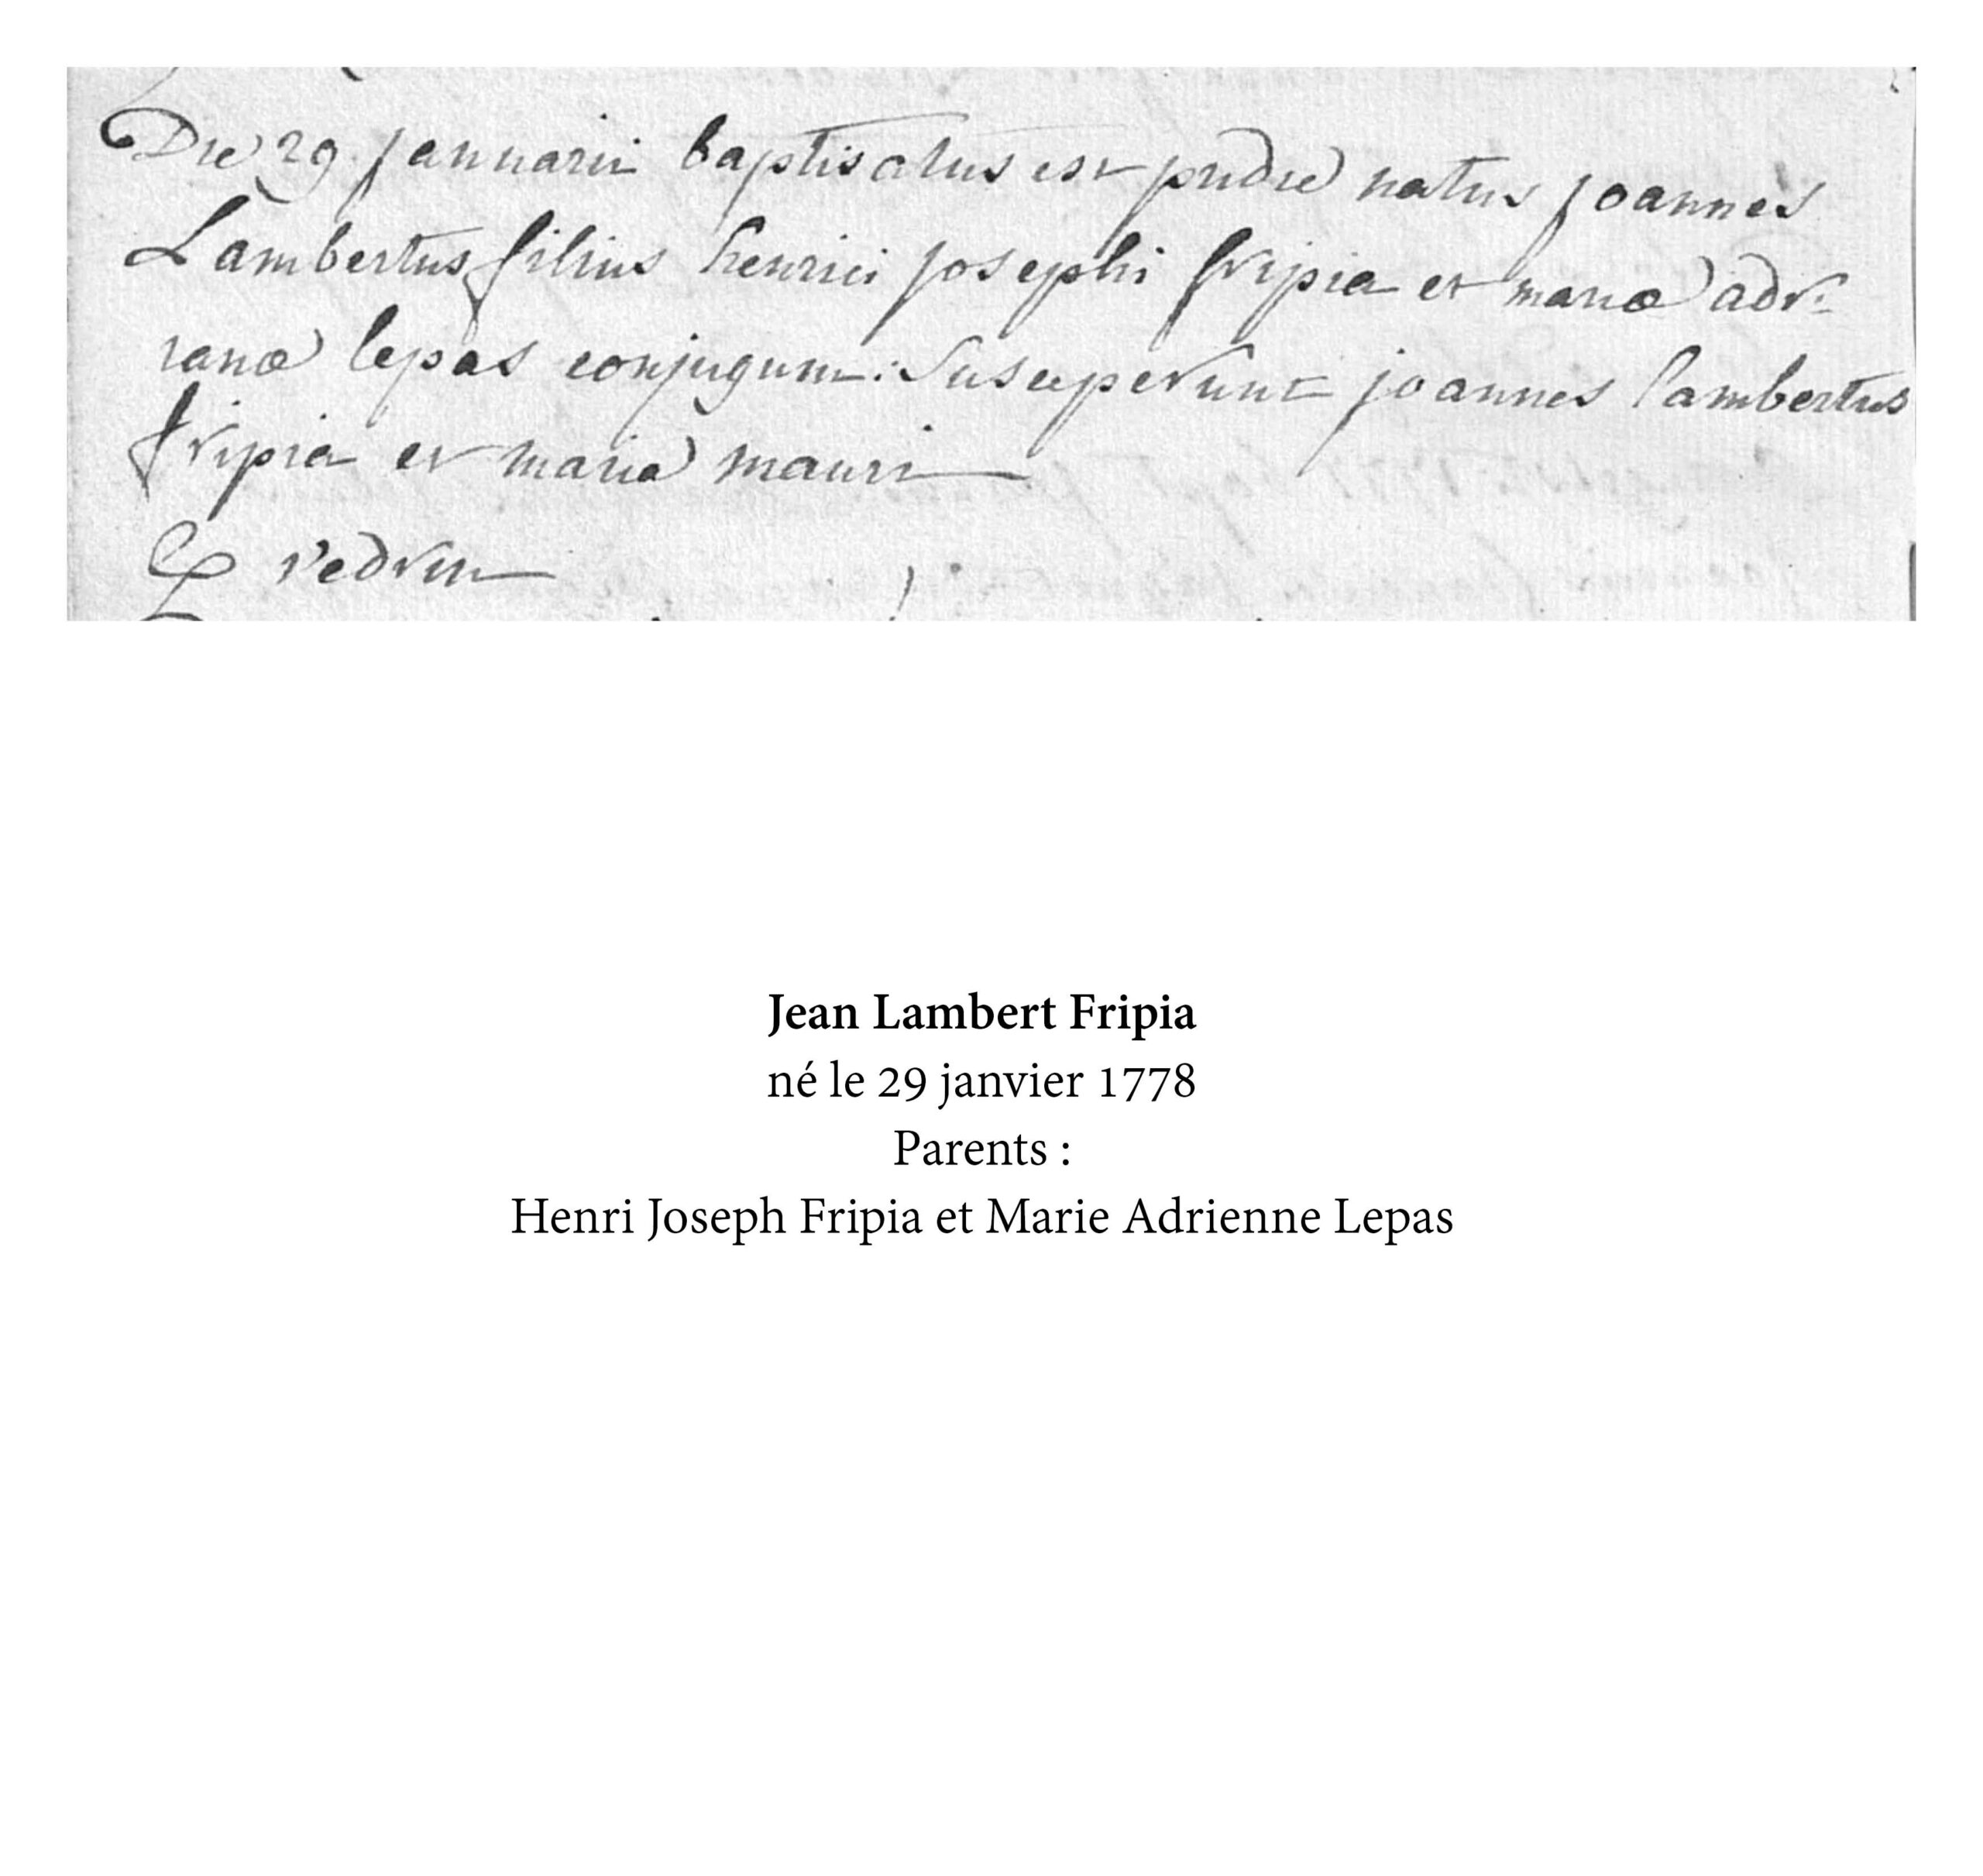 Die 29 januarii baptisatus est pridie natus joannes
Lambertus filius henrici josephi fripia et mariæ adri-
ianæ lepas conjugum: Susceperunt joannes lambertus
fripia et maria mauri
Ex vedrin
Jean Lambert Fripia
né le 29 janvier 1778
Parents :
Henri Joseph Fripia et Marie Adrienne Lepas